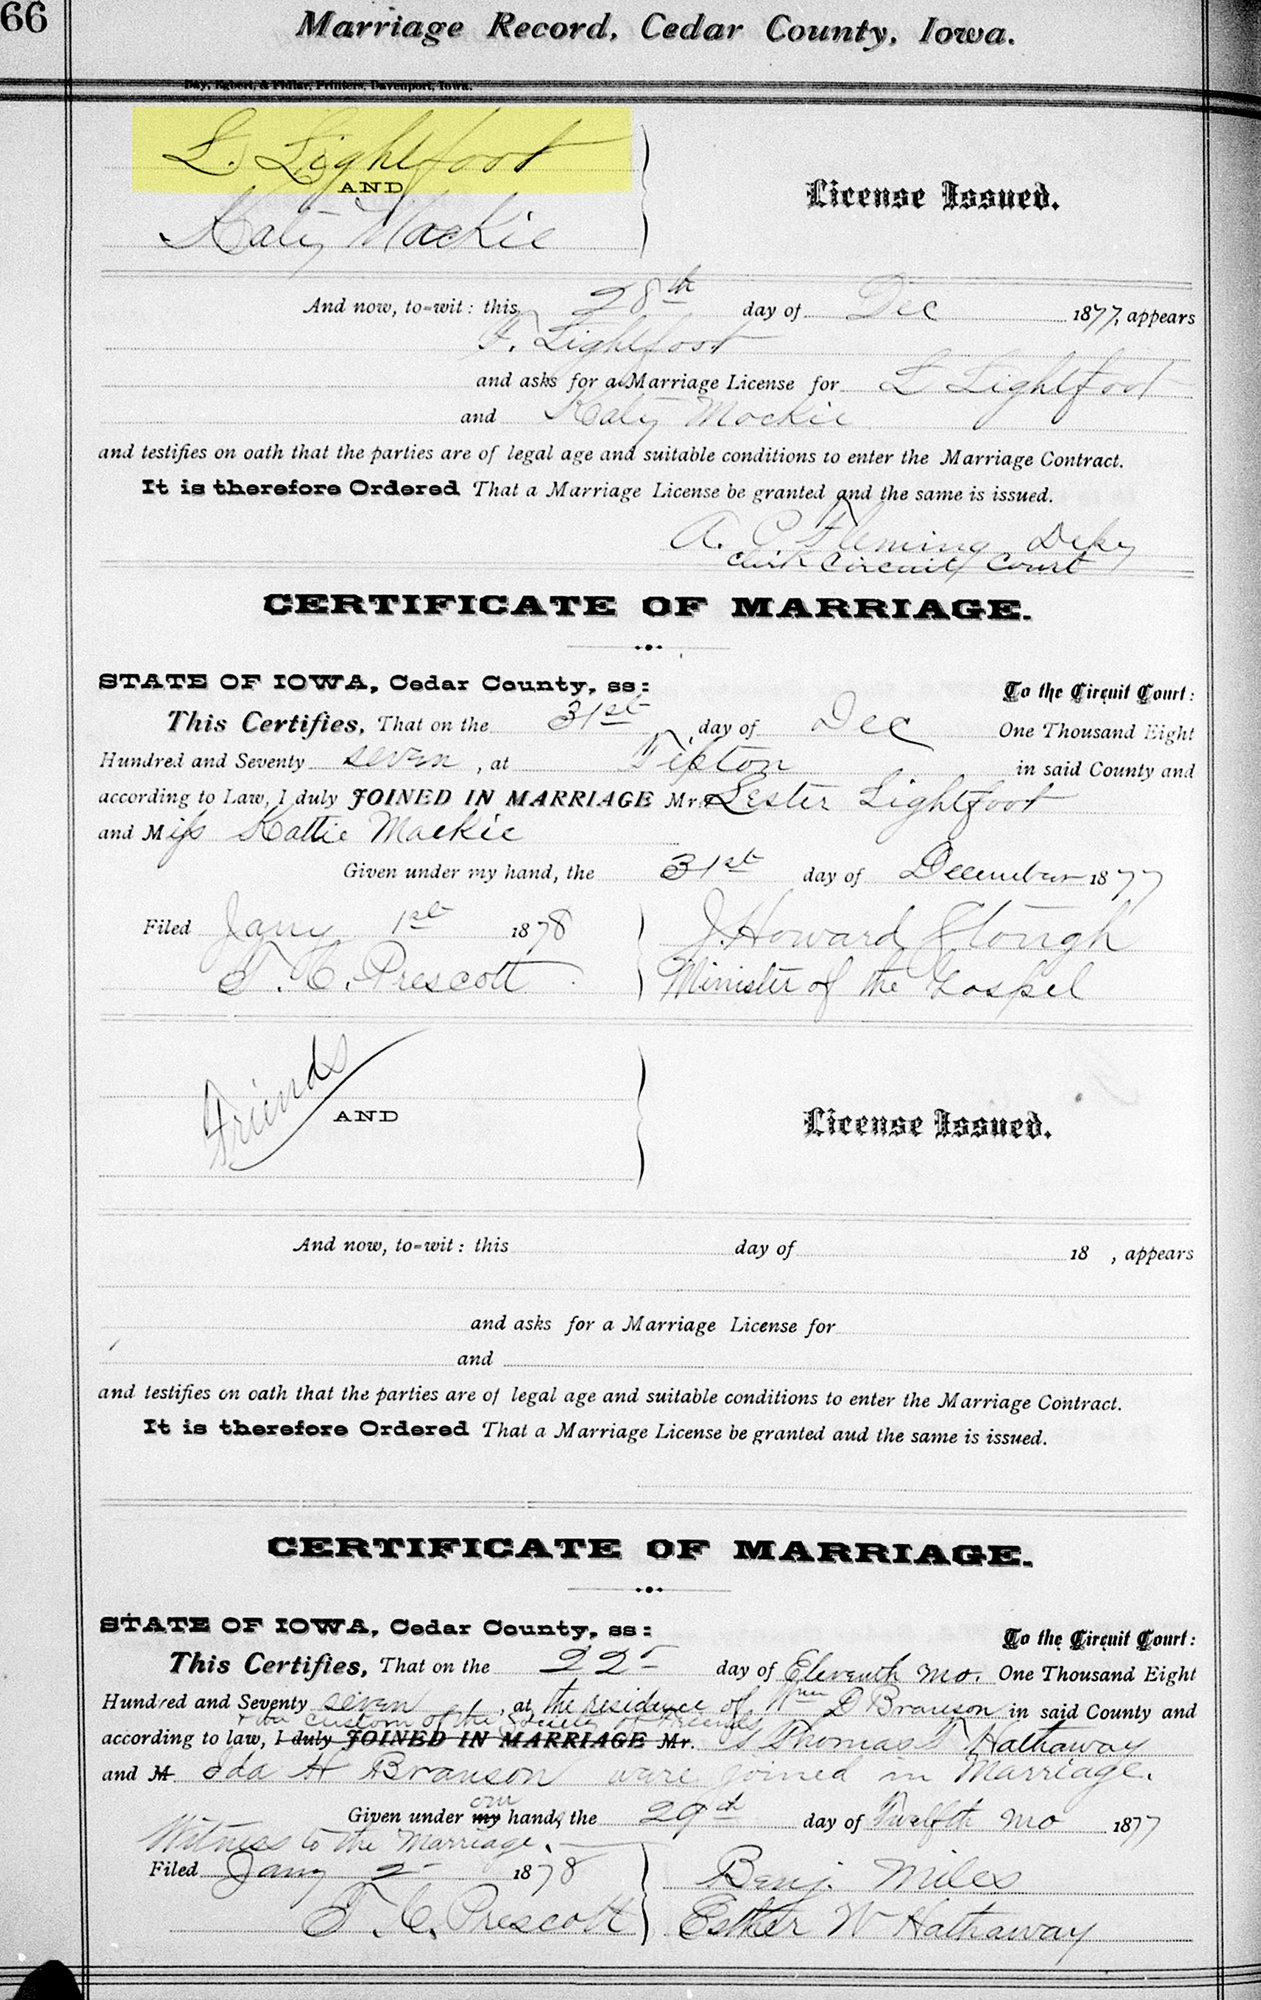 66
Marriage Record, Cedar County, Iowa.
Day, Egbert, & Fidlar, Printers, Davenport, Iowa.
L. Lightfoot
AND
Katy Mackie
License Issued.
And now, to-wit: this 28th day of Dec 1877, appears
Lightfoot
and asks for a Marriage License for L Lightfoot
and Katy Mackie
and testifies on oath that the parties are of legal age and suitable conditions to enter the Marriage Contract.
It is therefore Ordered That a Marriage License be granted and the same is issued.
A. C. Fleming Depy
Clerk Circuit Court
CERTIFICATE OF MARRIAGE.
STATE OF IOWA, Cedar County, ss: To the Circuit Court:
This Certifies, That on the 31st day of Dec One Thousand Eight
Hundred and Seventy seven, at Tipton in said County and
according to Law, I duly JOINED IN MARRIAGE Mr. Lester Lightfoot
and Miss Kattie Mackie
Given under my hand, the 31st day of December 1877
Filed Jany 1st 1878
J. Howard Slough
T. C. Prescott
Minister of the Gospel
Friends
AND
License Issued.
And now, to-wit: this day of 18 , appears
and asks for a Marriage License for
and
and testifies on oath that the parties are of legal age and suitable conditions to enter the Marriage Contract.
It is therefore Ordered That a Marriage License be granted and the same is issued.
CERTIFICATE OF MARRIAGE.
STATE OF IOWA, Cedar County, ss: To the Circuit Court:
This Certifies, That on the 22 day of Eleventh mo. One Thousand Eight
Hundred and Seventy seven, at the residence of Wm D Branson in said County and
custom of the Society of Friends
according to law, I duly JOINED IN MARRIAGE Mr. Thomas Hathaway
and M. Ida H Branson were joined in Marriage.
our
Given under my hands the 29th day of Twelfth mo 1877
Witness to the Marriage.
Filed Jany 2 1878
Benj. Miles
T. C. Prescott
Esther W Hathaway